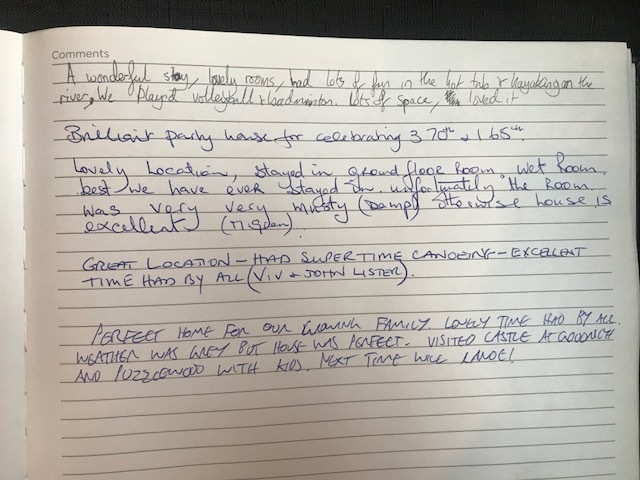 Comments
A wonderful stay, lovely rooms, had lots of fun in the hot tub & kayaking on the
river, We Played volleyball & badminton. lots of Space, loved it
Brilliant party house for celebrating 3 70th & 1 65th.
Lovely Location, stayed in ground floor Room, Wet Room
best we have ever stayed in. unfortunately the Room
was very very musty (Damp) otherwise house is
excellent
GREAT LOCATION – HAD SUPER TIME CANOEING – EXCELLENT
TIME HAD BY ALL (VIV & JOHN LISTER).
PERFECT HOME FOR OUR GROWING FAMILY. LOVELY TIME HAD BY ALL.
WEATHER WAS GREY BUT HOUSE WAS PERFECT. VISITED CASTLE AT GOODRICH
AND PUZZLEWOOD WITH KIDS. NEXT TIME WILL CANOE!